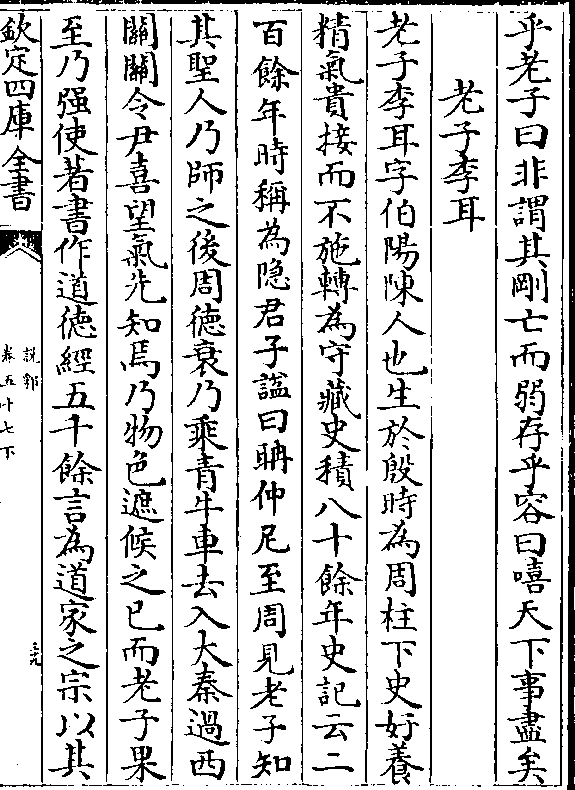 乎老子曰非謂其剛亡而弱存乎容曰嘻天下事盡矣
老子李耳
老子李耳字伯陽陳人也生於殷時為周柱下史好養
精氣貴接而不施轉為守藏史積八十餘年史記云二
百餘年時稱為隐君子諡曰聃仲尼至周見老子知
其聖人乃師之後周德衰乃乘青牛車去入大秦過西
關關令尹喜望氣先知焉乃物色遮候之已而老子果
至乃强使著書作道德經五千餘言為道家之宗以其
欽定四庫全書
說郛
卷五十七下